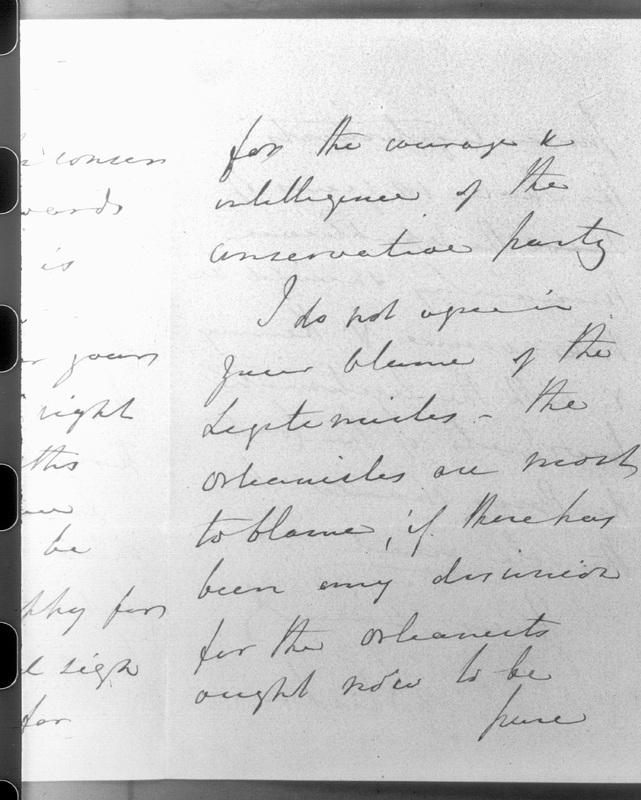 consers
wards
is
years
right
ths
be
for
sigh
for
for the courage &
intelligence of the
conservative party
I do not agree in
your blame of the
Legitimistes - the
orleanistes are most
to blame, if there has
been any disunion
for the orleanists
ought now to be
pure